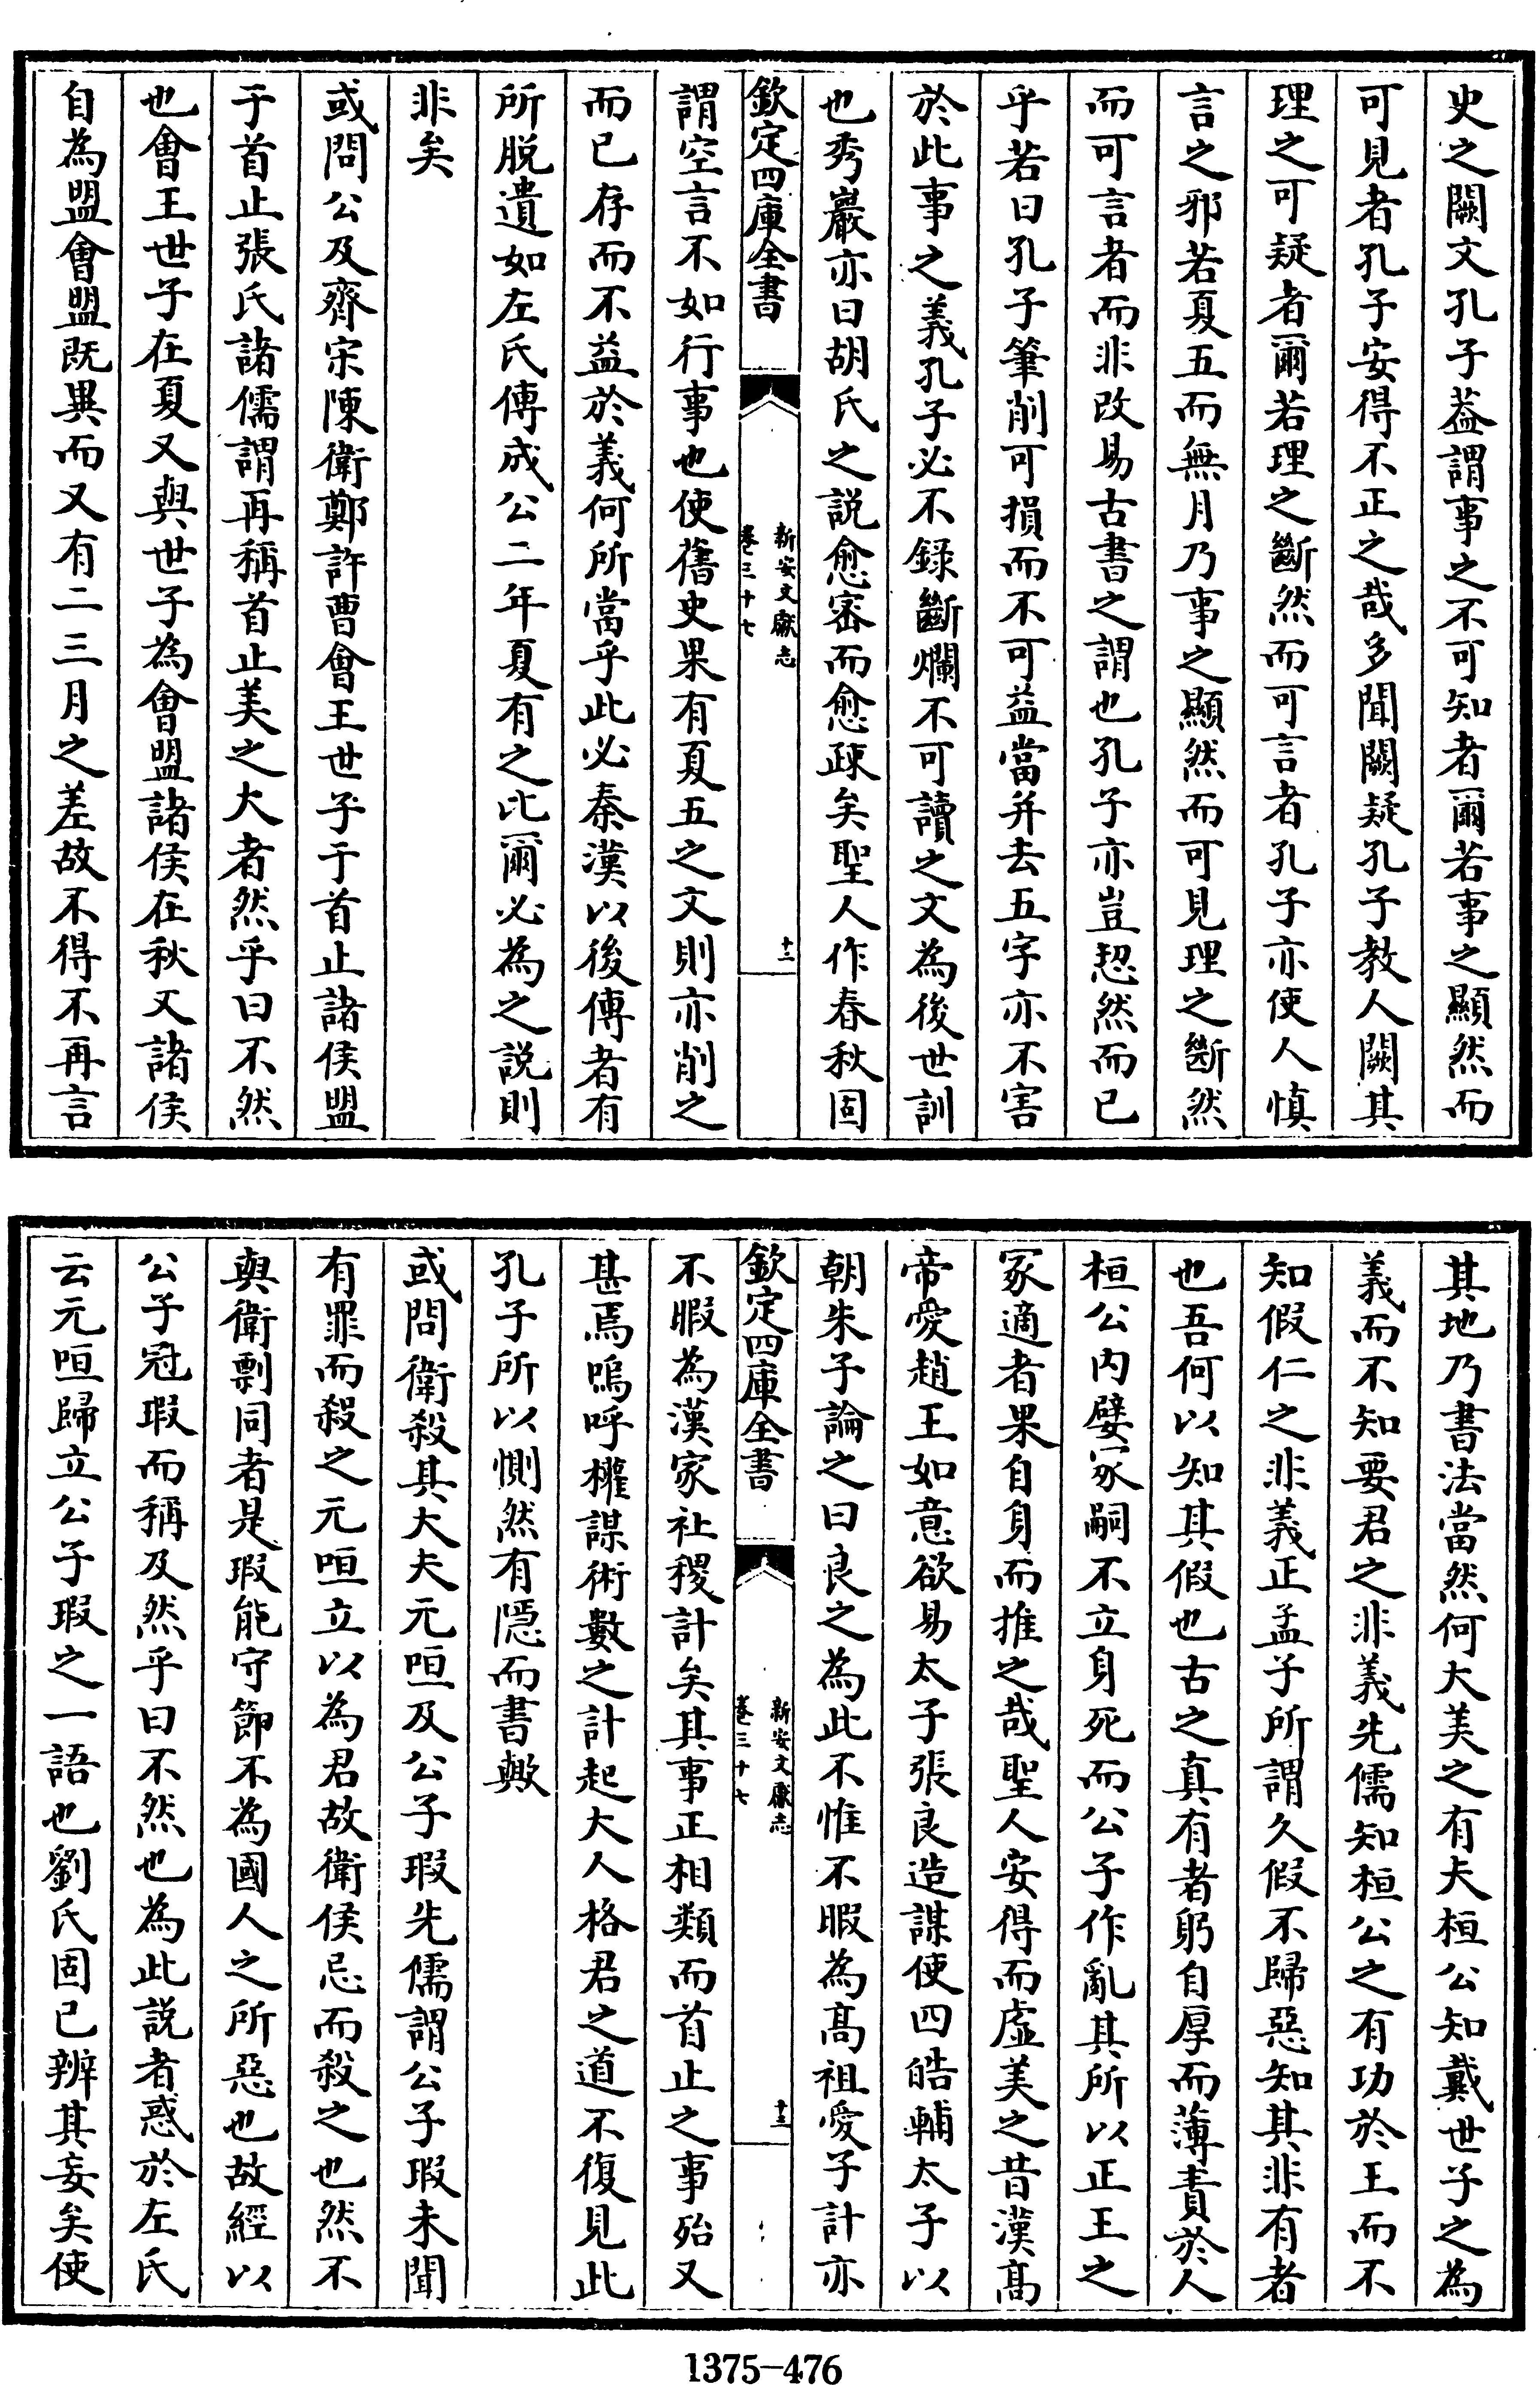 史之闕文孔子葢謂事之不可知者爾若事之顯然而
可見者孔子安得不正之哉多聞闕疑孔子教人闕其
理之可疑者爾若理之斷然而可言者孔子亦使人慎
言之邪若夏五而無月乃事之顯然而可見理之斷然
而可言者而非改易古書之謂也孔子亦豈恝然而已
乎若曰孔子筆削可損而不可益當并去五字亦不害
於此事之義孔子必不錄斷爛不可讀之文為後世訓
也秀巖亦曰胡氏之説愈密而愈疎矣聖人作春秋固
欽定四庫全書
新安文獻志
卷三十七
十二
謂空言不如行事也使舊史果有夏五之文則亦削之
而已存而不益於義何所當乎此必秦漢以後傳者有
所脱遺如左氏傳成公二年夏有之比爾必為之説則
非矣
或問公及齊宋陳衛鄭許曹會王世子于首止諸侯盟
于首止張氏諸儒謂再稱首止美之大者然乎曰不然
也會王世子在夏又與世子為會盟諸侯在秋又諸侯
自為盟會盟既異而又有二三月之差故不得不再言
其地乃書法當然何大美之有夫桓公知戴世子之為
義而不知要君之非義先儒知桓公之有功於王而不
知假仁之非義正孟子所謂久假不歸惡知其非有者
也吾何以知其假也古之真有者躬自厚而薄責於人
桓公内嬖冢嗣不立身死而公子作亂其所以正王之
冢適者果自身而推之哉聖人安得而虛美之昔漢髙
帝愛趙王如意欲易太子張良造謀使四皓輔太子以
朝朱子論之曰良之為此不惟不暇為髙祖愛子計亦
欽定四庫全書
新安文獻志
卷三十七
十三
不暇為漢家社稷計矣其事正相類而首止之事殆又
甚焉嗚呼權謀術數之計起大人格君之道不復見此
孔子所以惻然有隱而書歟
或問衛殺其大夫元咺及公子瑕先儒謂公子瑕未聞
有罪而殺之元咺立以為君故衛侯忌而殺之也然不
與衛剽同者是瑕能守節不為國人之所惡也故經以
公子冠瑕而稱及然乎曰不然也為此説者惑於左氏
云元咺歸立公子瑕之一語也劉氏固已辨其妄矣使
1375-476